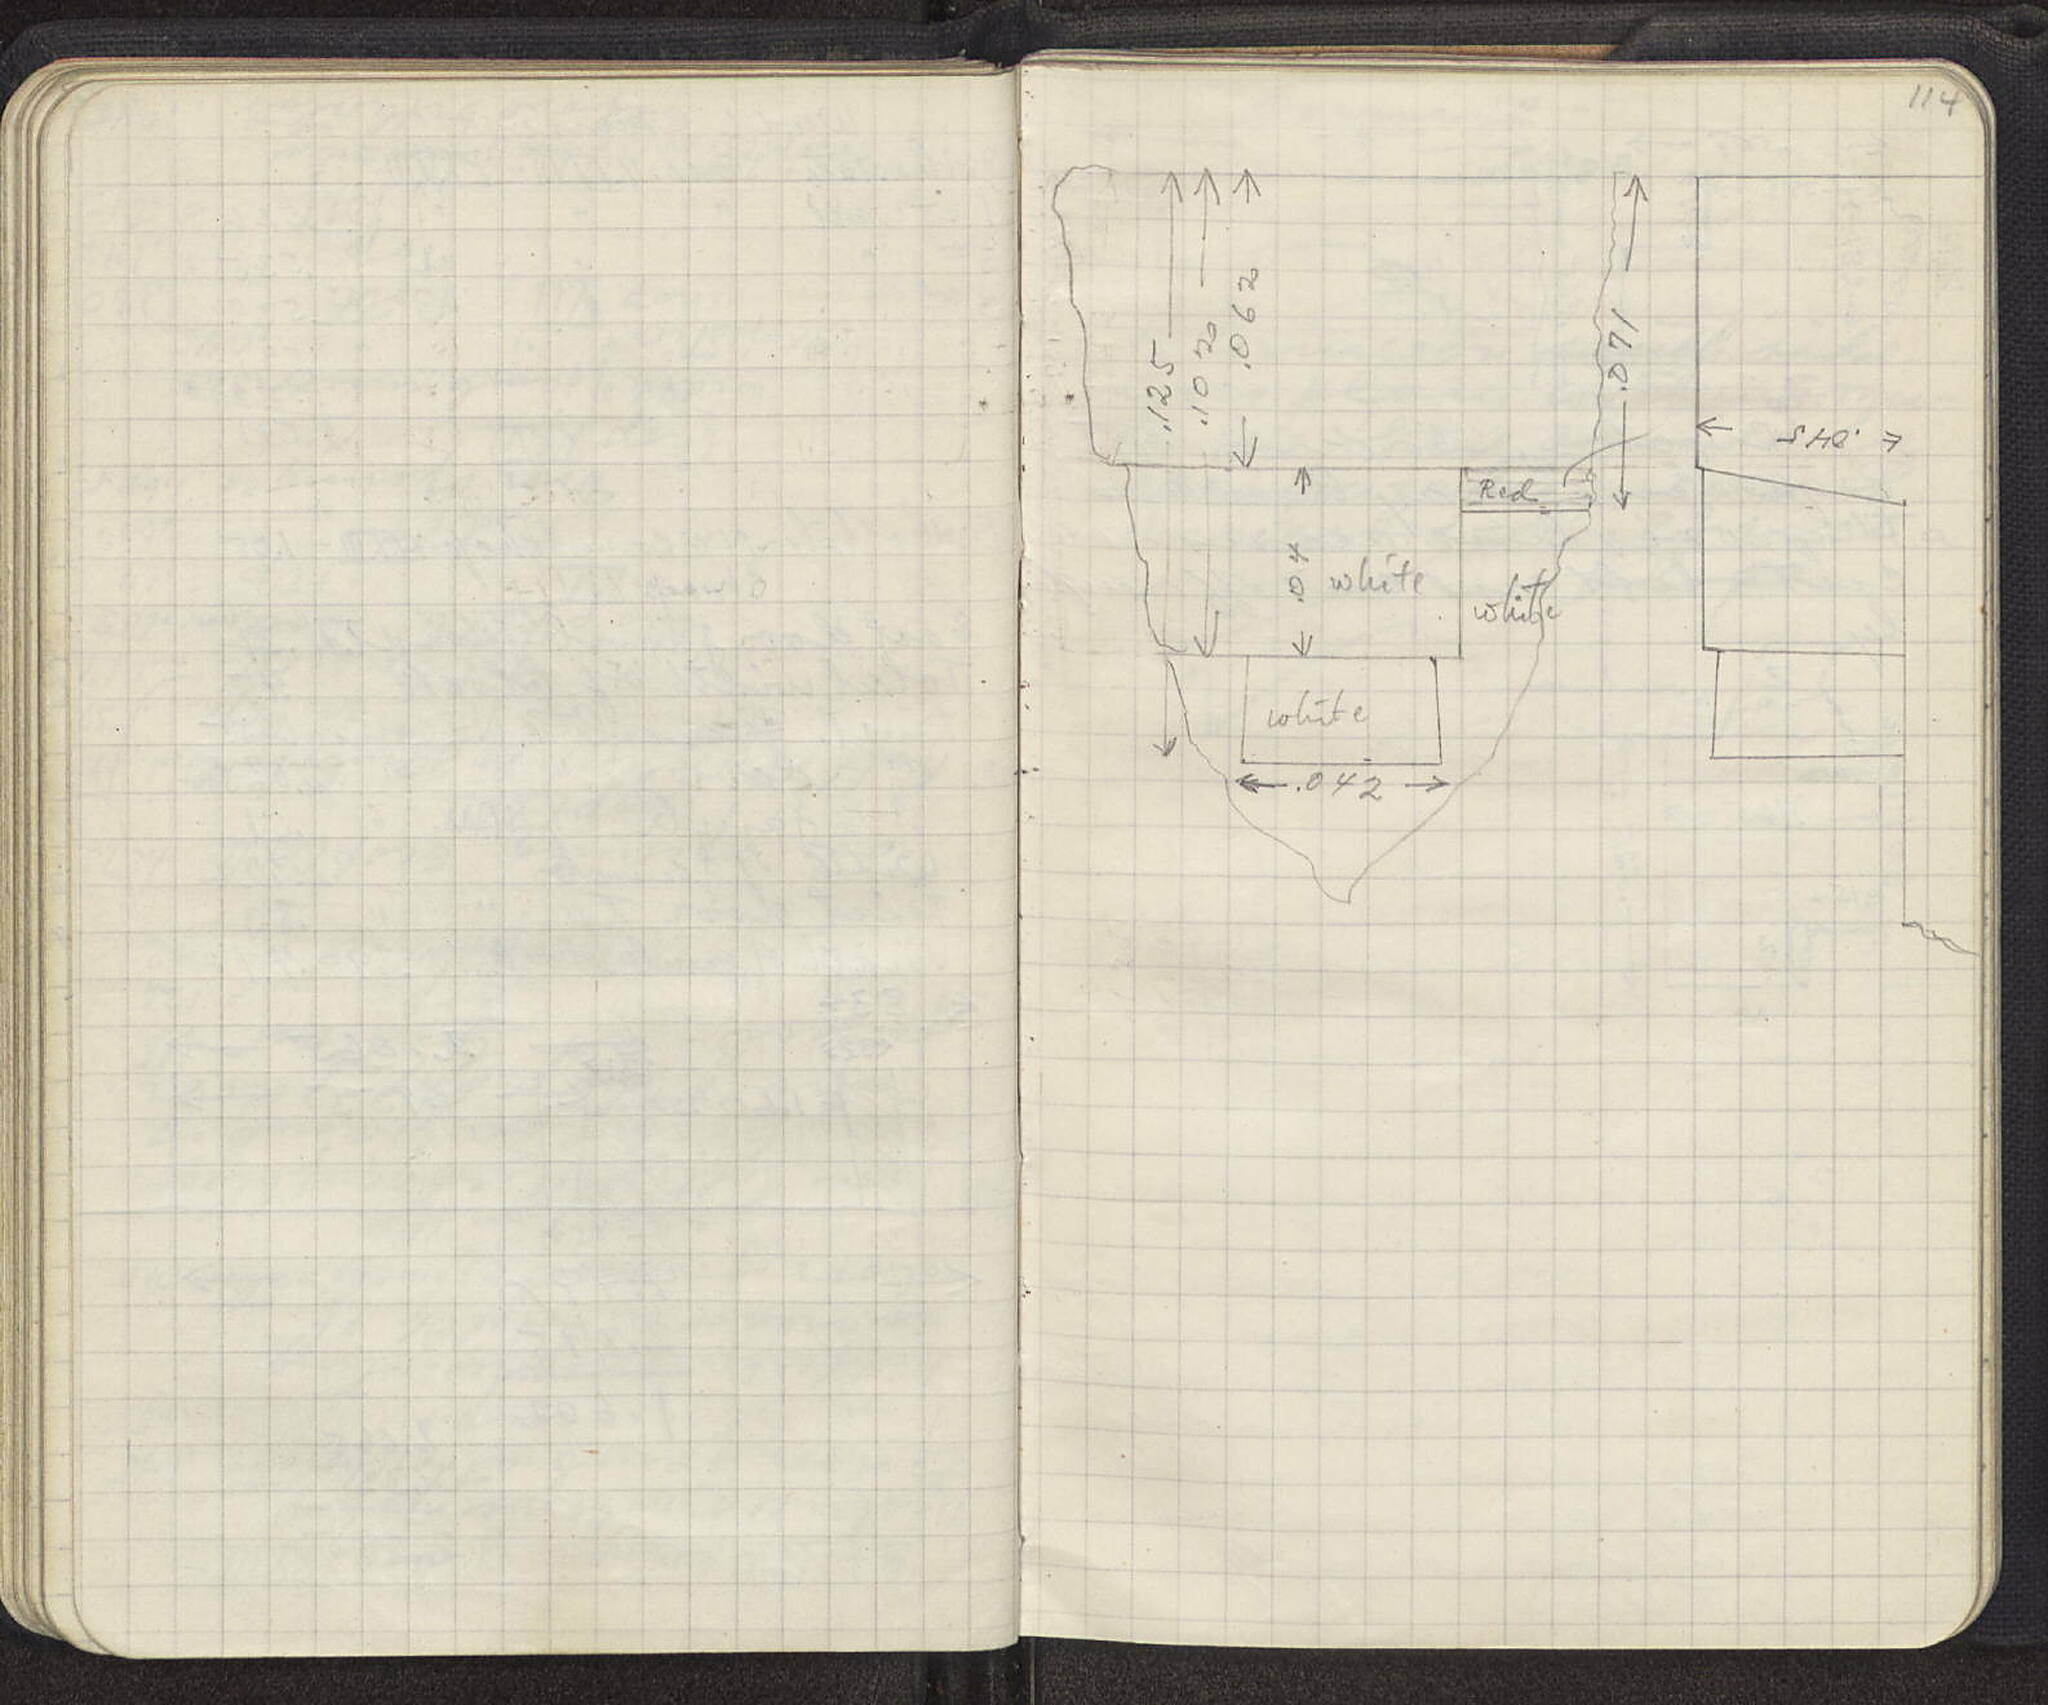 114
.125
.102
.062
.071
.045
Red
.04
white
white
white
.042